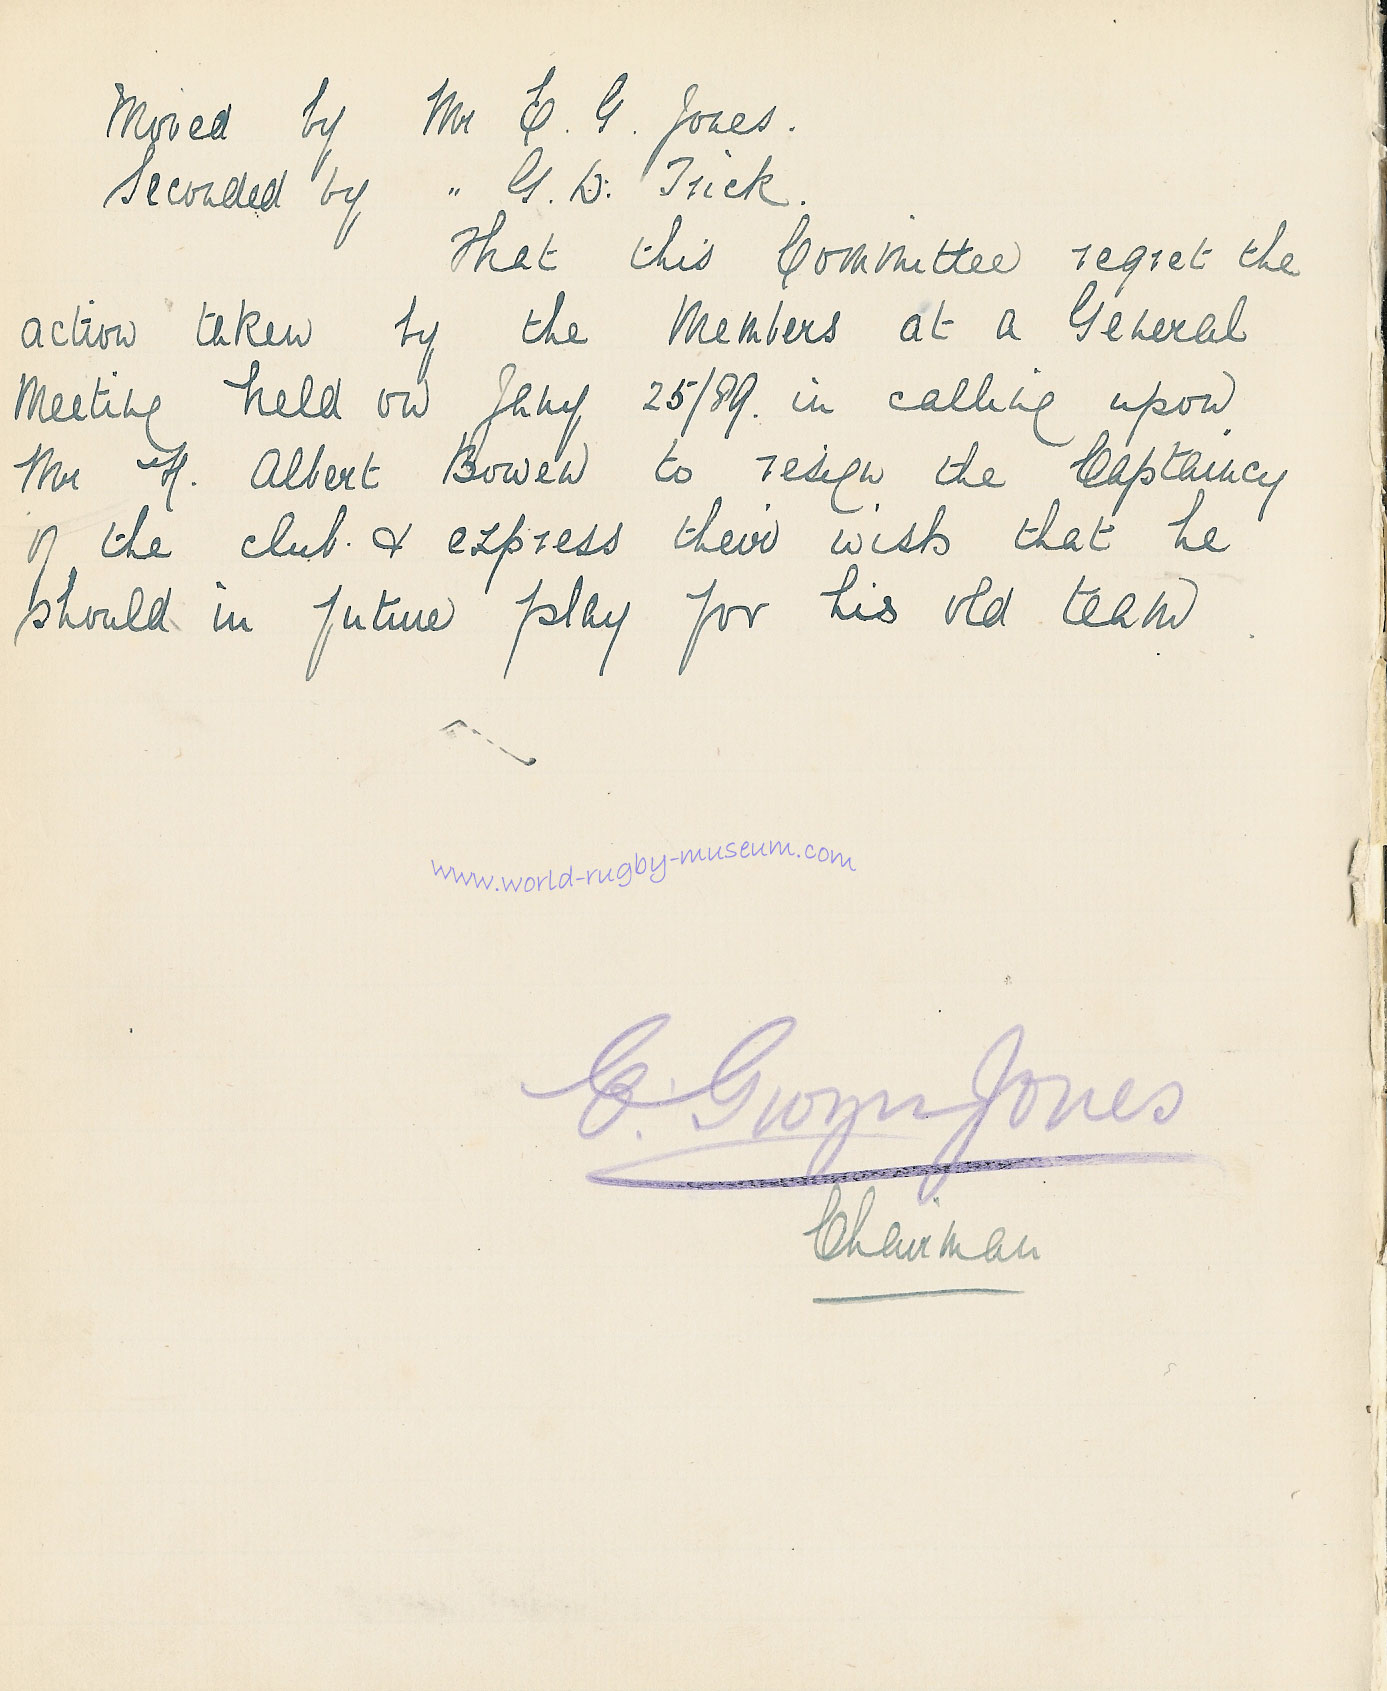 Moved by Mr E. G. Jones.
Seconded by " G. D. Trick.
That this Committee regret the
action taken by the Members at a General
Meeting held on Jany 25/89. in calling upon
Mr H. Albert Bowen to resign the Captaincy
of the club. & express their wish that he
should in future play for his old team.
www.world-rugby-museum.com
E. Gwyn Jones
Chairman